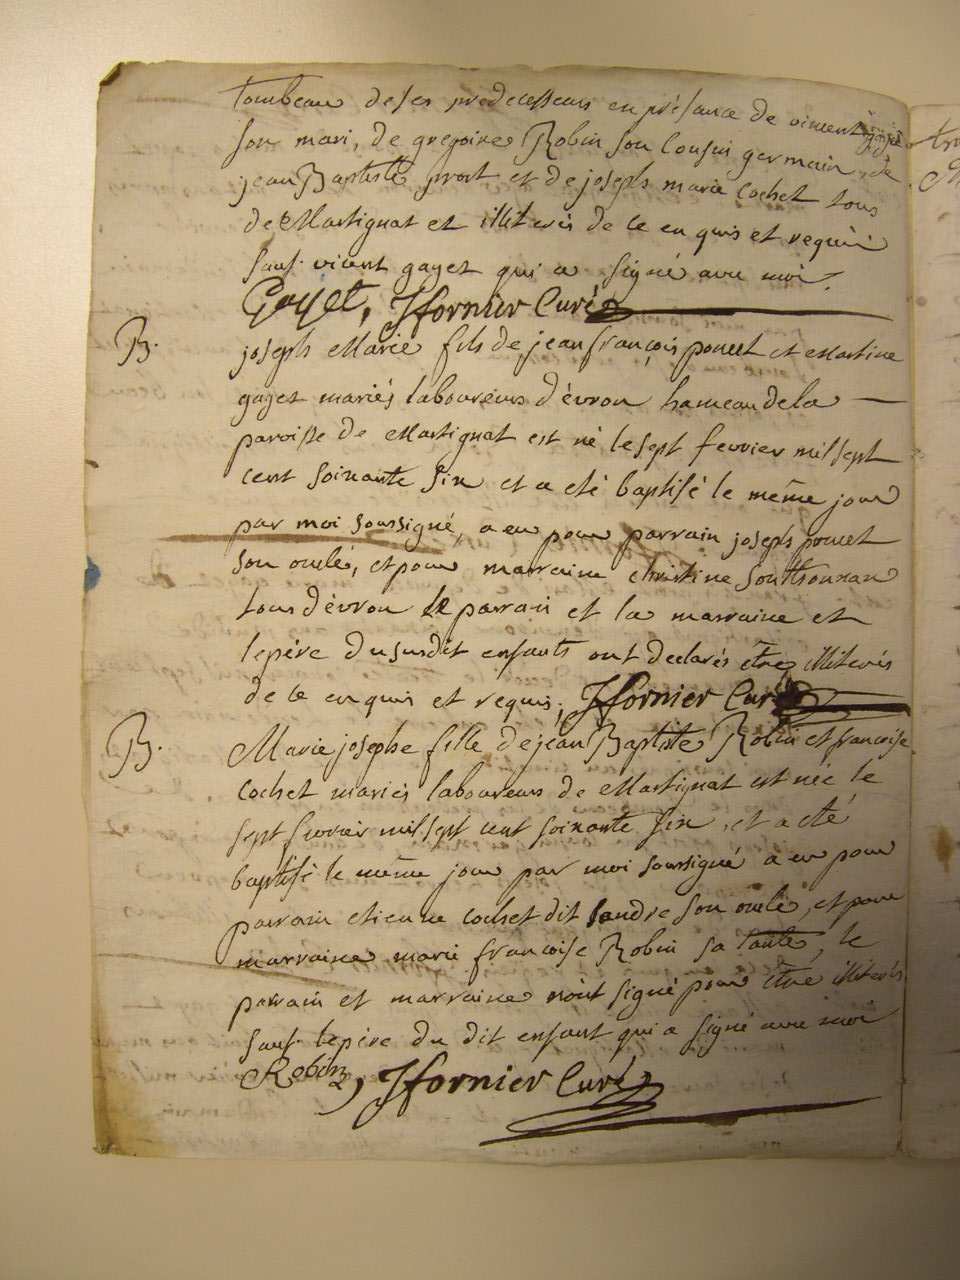 tombeau de ses predecesseurs en présance de vincent gayet
son mari, de gregoire Robin son cousin germain, de
jean Baptiste prost et de joseph marie cochet tous
de Martignat et illiterés de ce enquis et requis
sauf vicent gayet qui a signé avec moi.
Gayet, Jfornier Curé
B.
joseph Marie fils de jean françois poncet et Martine
gayet mariés laboureurs d'évron hameau de la
paroisse de Martignat est né le sept fevrier mil sept
cent soixante six et a eté baptisé le même jour
par moi soussigné, a eu pour parrain joseph poncet
son oncle, et pour marraine christine
tous d'évron le parrain et la marraine et
le père du susdit enfants ont declarés être illiterés
de ce enquis et requis, Jfornier Curé
B.
Marie josephe fille de jean Baptiste Robin et françoise
Cochet mariés laboureurs de Martignat est née le
sept fevrier mil sept cent soixante six, et a eté
baptisé le même jour par moi soussigné a eu pour
parrain etienne cochet dit Landre son oncle, et pour
marraine marie françoise Robin sa tante, le
parrain et marraine n'oint signé pour être illiterés
sauf le père du dit enfant qui a signé avec moi
Robin, Jfornier Curé